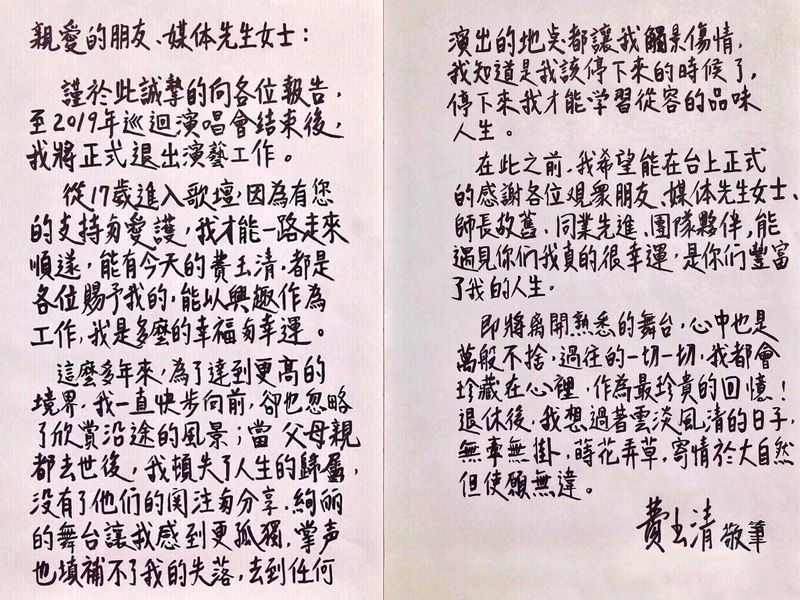 親愛的朋友、媒体先生女士：
謹於此誠摯的向各位報告，
至2019年巡迴演唱會結束後，
我將正式退出演藝工作。
從17歲進入歌壇，因為有您
的支持与愛護，我才能一路走來
順遂，能有今天的費玉清，都是
各位賜予我的，能以興趣作為
工作，我是多麼的幸福与幸運。
這麼多年來，為了達到更高的
境界，我一直快步向前，卻也忽略
了欣賞沿途的風景；當父母親
都去世後，我頓失了人生的歸屬，
没有了他們的関注与分享，絢丽
的舞台讓我感到更孤獨，掌声
也填補不了我的失落，去到任何
演出的地点都讓我觸景傷情，
我知道是我該停下來的時候了，
停下來我才能学習從容的品味
人生。
在此之前，我希望能在台上正式
的感謝各位观眾朋友、媒体先生女士、
師長故舊、同業先進、團隊夥伴，能
遇見你們我真的很幸運，是你們豐富
了我的人生。
即將离開熟悉的舞台，心中也是
萬般不捨，過往的一切一切，我都會
珍藏在心裡，作為最珍貴的回憶！
退休後，我想過著雲淡風清的日子，
無牽無掛，蒔花弄草，寄情於大自然
但使願無違。
費玉清 敬筆